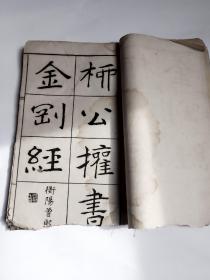 柳公權書
金剛經
衡陽曾熙